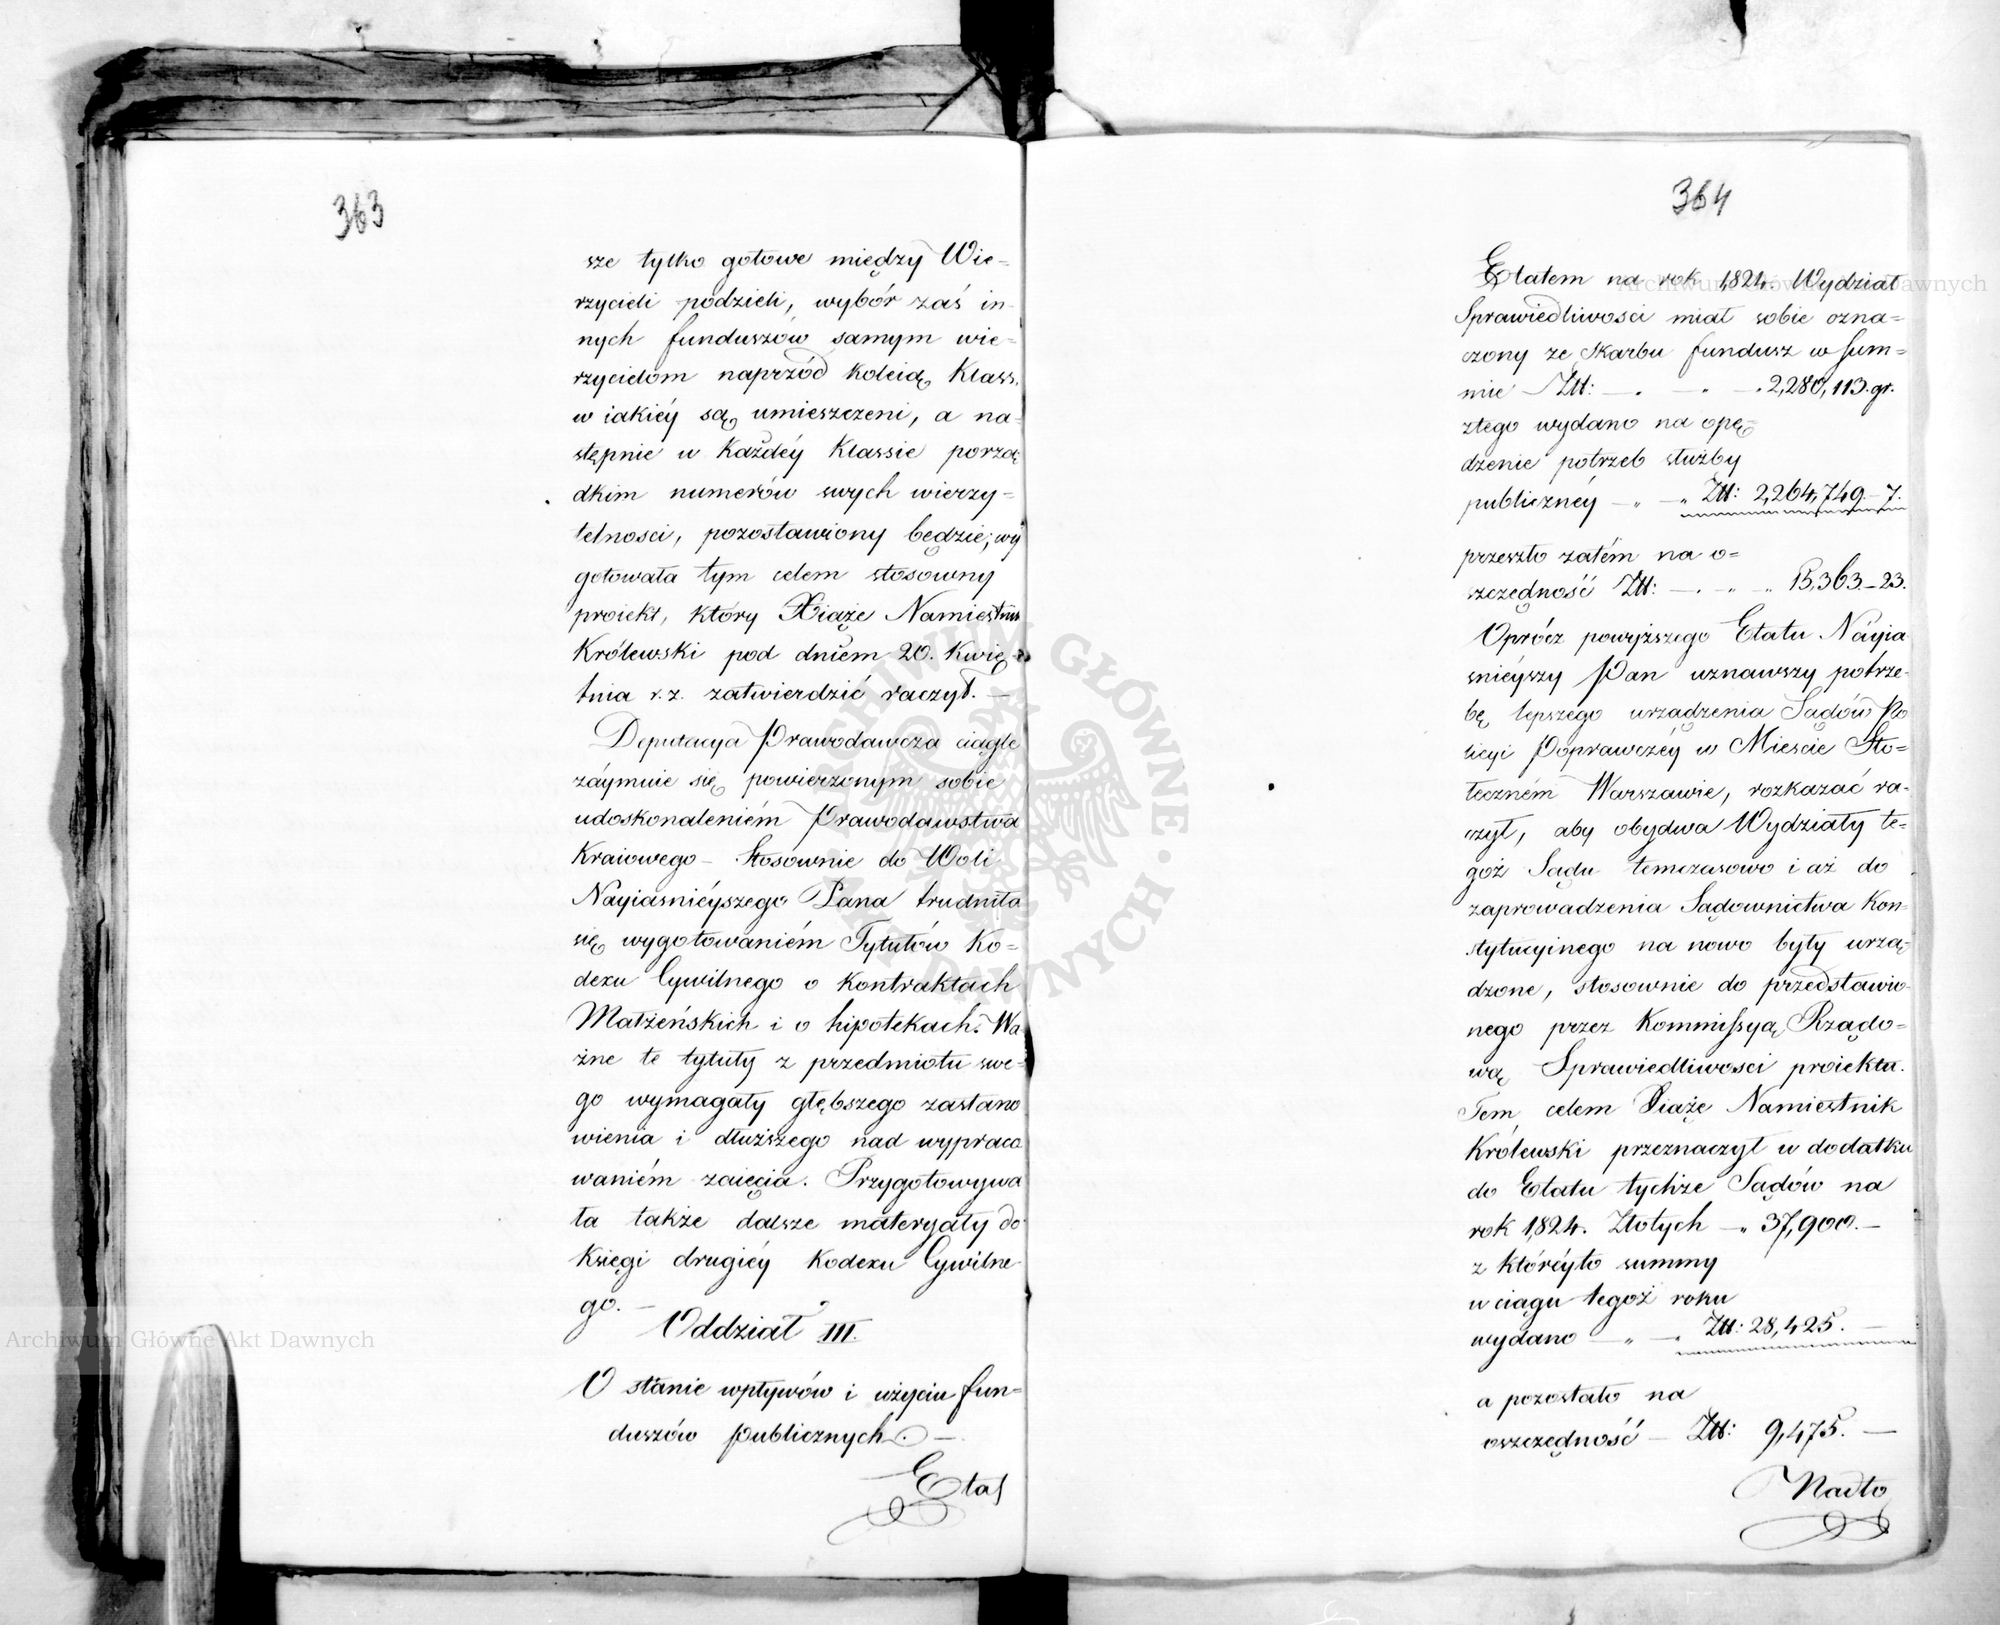 363
sze tylko gotowe między Wie-
rzycieli podzieli, wybór zaś in-
nych funduszów samym wie-
rzycielom naprzód koleią Klass,
w iakiéy są umieszczeni, a na-
stępnie w każdéy Klassie porzą
dkim numerów swych wierzy-
telności, pozostawiony będzie; wy
gotowała tym celem stosowny
proiekt, który Xiąże Namiestnik
Królewski pod dniem 20. Kwie-
tnia r.z. zatwierdzić raczył. —
Deputacya Prawodawcza ciągle
zaymuie się powierzonym sobie
udoskonaleniém Prawodawstwa
Kraiowego – Stosownie do Woli
Nayiaśniéyszego Pana trudniła
się wygotowaniém Tytułów Ko-
dexu Cywilnego o kontraktach
Małżeńskich i o hipotekach. Wa
żne te tytuły z przedmiotu swe-
go wymagały głębszego zastano
wienia i dłuższego nad wypraco
waniém zaięcia. Przygotowywa
ła także dalsze materyały do
Księgi drugiéy Kodexu Cywilne
go. —
Oddział III.
O stanie wpływów i użyciu fun-
duszów publicznych. —
Etat
364
Etatem na rok 1824. Wydział
Sprawiedliwości miał sobie ozna-
czony ze Skarbu fundusz w sum-
mie Złł: — . — " — . 2,280,113. gr.
z tego wydano na opę-
dzenie potrzeb służby
publicznéy — " — " Złł: 2,264,749. – 7.
przeszło zatém na o-
szczędność Złł: — . — " — " 15,363. – 23.
Oprócz powyższego Etatu Nayia
śniéyszy Pan uznawszy potrze-
bę lepszego urządzenia Sądów Po
licyi Poprawczéy w Mieście Sto-
łeczném Warszawie, rozkazać ra-
czył, aby obydwa Wydziały te-
goż Sądu tymczasowo i aż do
zaprowadzenia Sądownictwa Kon-
stytucyinego na nowo były urzą-
dzone, stosownie do przedstawio-
nego przez Kommissyą Rządo-
wą Sprawiedliwości proiektu.
Tem celem Xiąże Namiestnik
Królewski przeznaczył w dodatku
do Etatu tychże Sądów na
rok 1824. Złotych — " 37,900. —
z któréyto summy
w ciągu tegoż roku
wydano — " — . Złł: 28,425. —
a pozostało na
oszczędność — Złł: 9,475. —
Nadto
Archiwum Główne Akt Dawnych
Archiwum Główne Akt Dawnych
ARCHIWUM GŁÓWNE AKT DAWNYCH